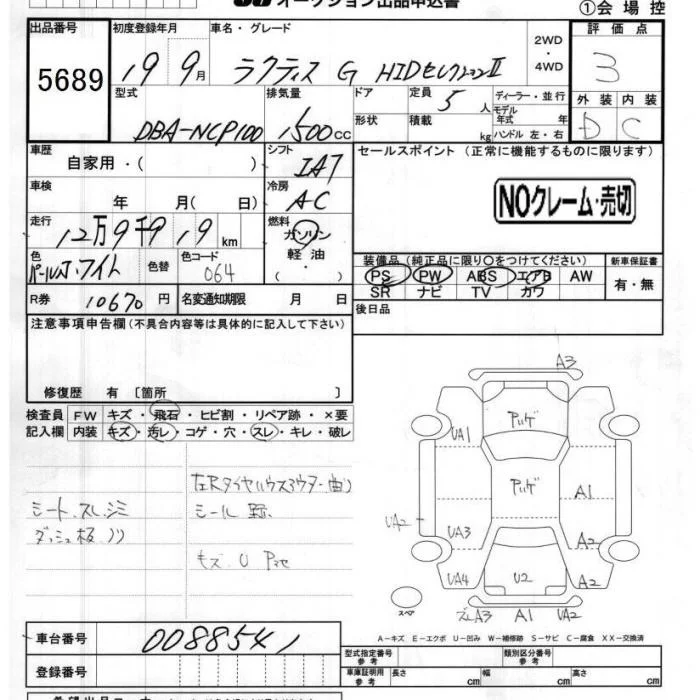 オークション出品申込書 ①会場控
出品番号 初度登録年月 車名・グレード 2WD・4WD 評価点
5689 19 9月 ラクティス G HIDセレクションⅡ 3
型式 排気量 ドア 定員 5人 ディーラー・並行 外装 内装
DBA-NCP100 1500cc 形状 積載 kg モデル年式 年 ハンドル 左・右 D C
車歴 自家用・( ) シフト IAT セールスポイント (正常に機能するものに限ります)
車検 年 月( 日) 冷房 AC NOクレーム・売切
走行 12万9千919km 燃料 ガソリン・軽油・( )
色 パールホワイト 色替 色コード 064
装備品 (純正品に限り○をつけてください) 新車保証書
PS PW ABS エアB AW 有・無
SR ナビ TV カワ
R券 10670円 名変通知期限 月 日 後日品
注意事項申告欄 (不具合内容等は具体的に記入して下さい)
修復歴 有 〔箇所 〕
検査員 FW キズ・飛石・ヒビ割・リペア跡・×要
記入欄 内装 キズ・汚レ・コゲ・穴・スレ・キレ・破レ
シート、スレ、シミ
ダッシュ板、ノリ
左Rタイヤハウスアウター曲り
シール
キズ U
A3
UA1
UA2 A1
UA3 A2
UA4 U2 A2
スペア A3 A1 UA2
A-キズ E-エクボ U-凹み W-補修跡 S-サビ C-腐食 XX-交換済
車台番号 0088541
登録番号
型式指定番号 参考 類別区分番号 参考
車庫証明用 参考 長さ cm 幅 cm 高さ cm